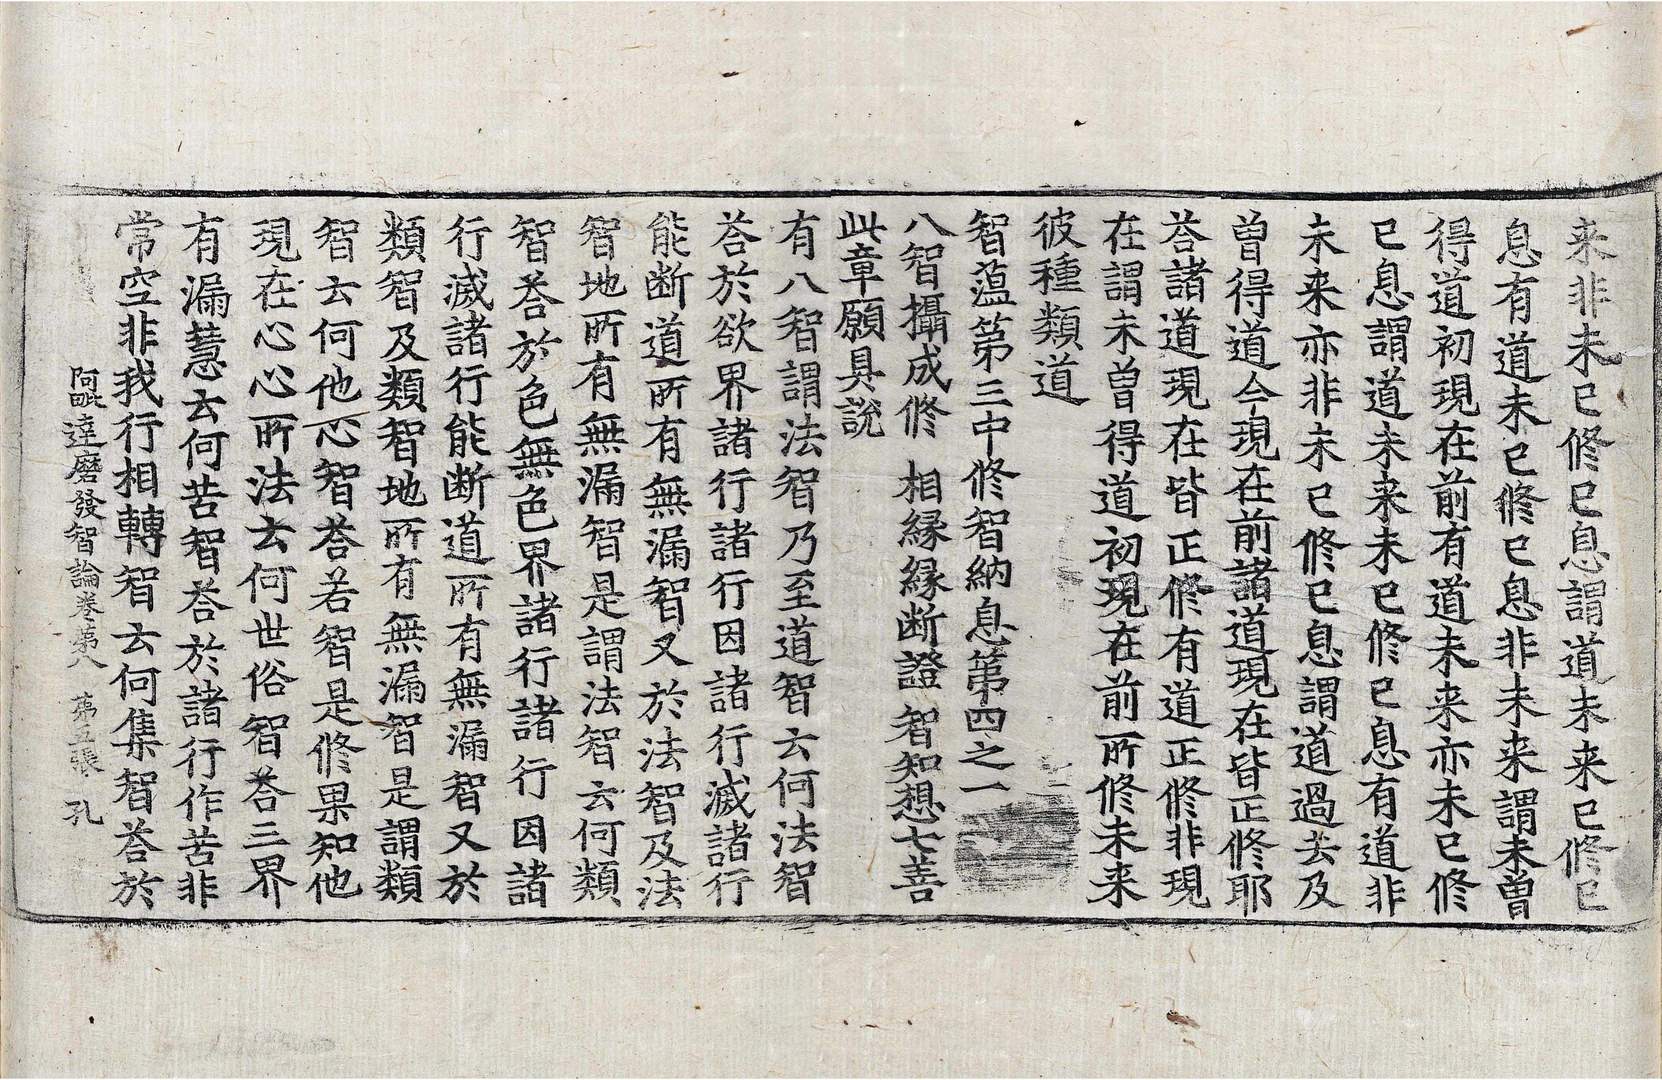 来非未已修已息謂道未来已修已
息有道未已修已息非未来謂未曽
得道初現在前有道未来亦未已修
已息謂道未来未已修已息有道非
未来亦非未已修已息謂道過去及
曽得道今現在前諸道現在皆正修耶
荅諸道現在皆正修有道正修非現
在謂未曽得道初現在前所修未来
彼種類道
智藴第三中修智納息第四之一
八智攝成修 相縁縁断證 智知想七善
此章願具說
有八智謂法智乃至道智云何法智
荅於欲界諸行諸行因諸行滅諸行
能断道所有無漏智又於法智及法
智地所有無漏智是謂法智云何類
智荅於色無色界諸行諸行因諸
行滅諸行能断道所有無漏智又於
類智及類智地所有無漏智是謂類
智云何他心智荅若智是修果知他
現在心心所法云何世俗智荅三界
有漏慧云何苦智荅於諸行作苦非
常空非我行相轉智云何集智荅於
阿毗達磨發智論卷第八 第五張 孔